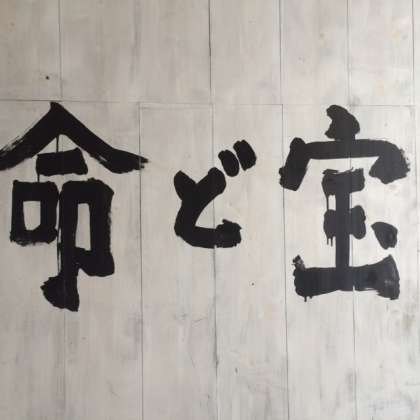 命ど宝